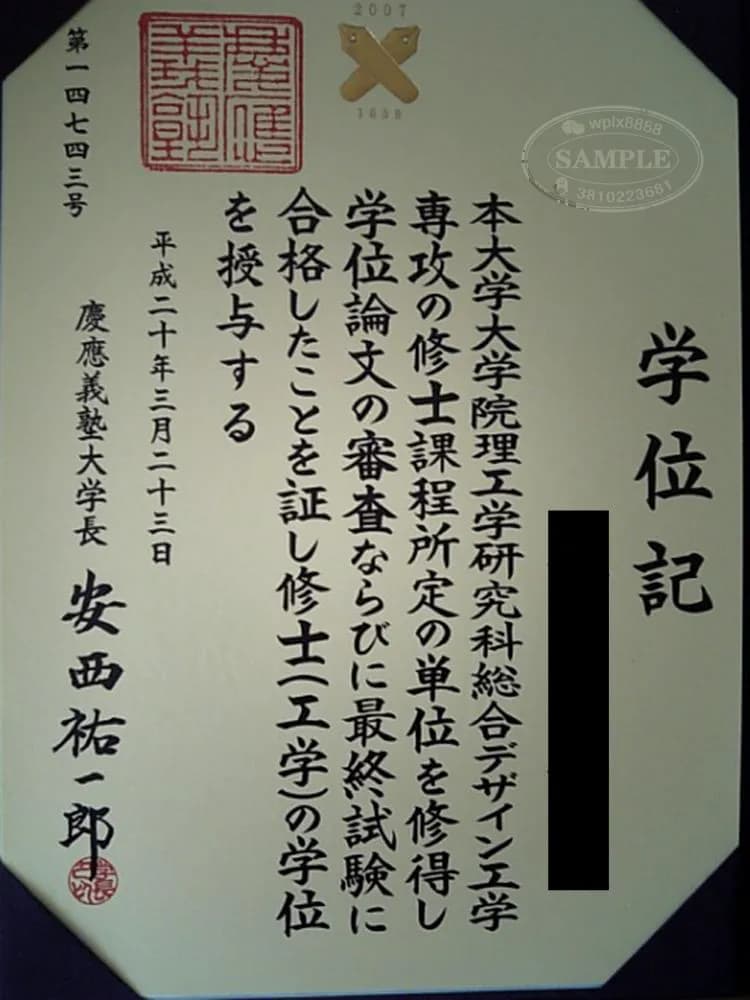 学位記
本大学大学院理工学研究科総合デザイン工学
専攻の修士課程所定の単位を修得し
学位論文の審査ならびに最終試験に
合格したことを証し修士(工学)の学位
を授与する
平成二十年三月二十三日
慶應義塾大学長 安西祐一郎
第一四七四三号
慶應義塾
2007
1858
wplx8858
SAMPLE
3810223681